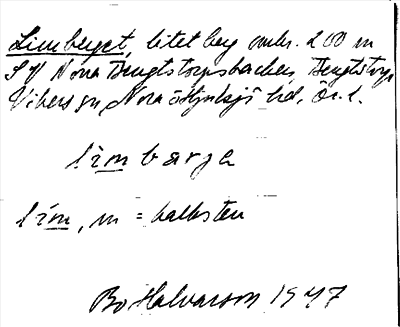 Limberget, litet berg omkr. 200 m
SV Norra Bengtstorpsbacken, Bengtstorp,
Vikers sn, Nora o Hjulsjö hd, Ör. l.
lim bärje
lim, m = kalksten
Bo Halvarson 1947